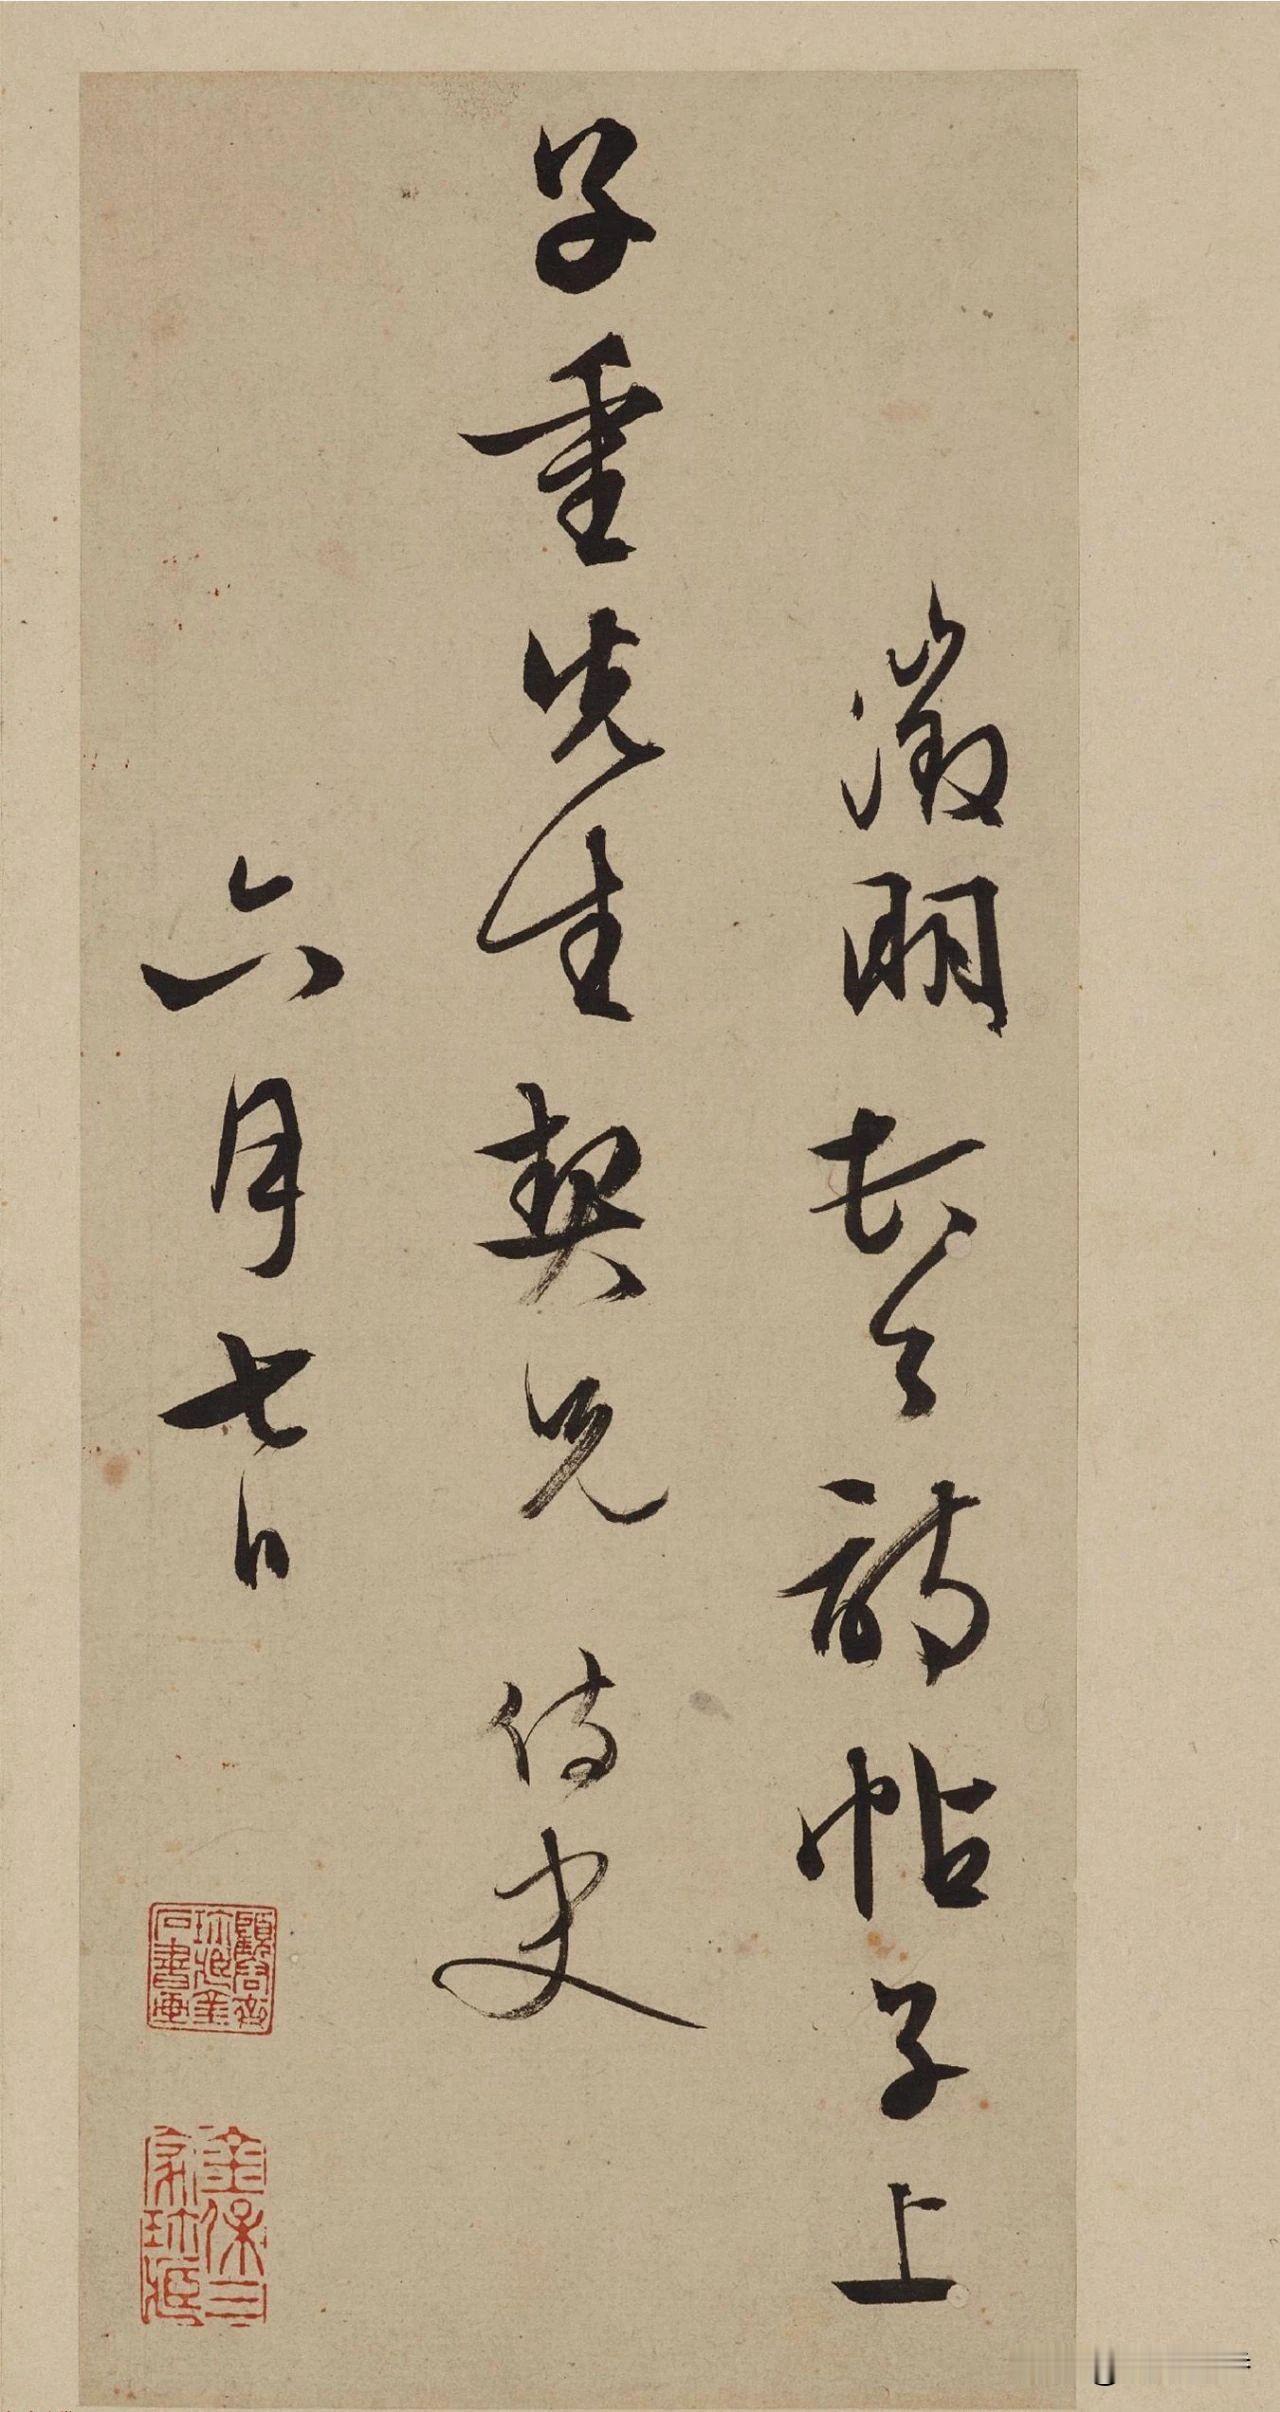 徵明頓首帖子上
子重先生契兄侍史
六月七日
珍藏金石書画
金保三家珍藏